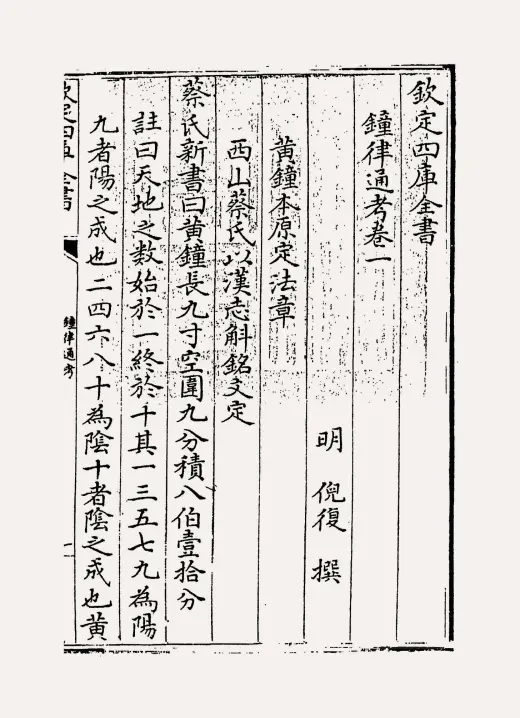 欽定四庫全書
鐘律通考卷一
明 倪復 撰
黄鐘本原定法章
西山蔡氏以漢志斛銘文定
蔡氏新書曰黄鐘長九寸空圍九分積八伯壹拾分
註曰天地之数始於一終於十其一三五七九為陽
九者陽之成也二四六八十為陰十者陰之成也黄
欽定四庫全書
鐘律通考
一